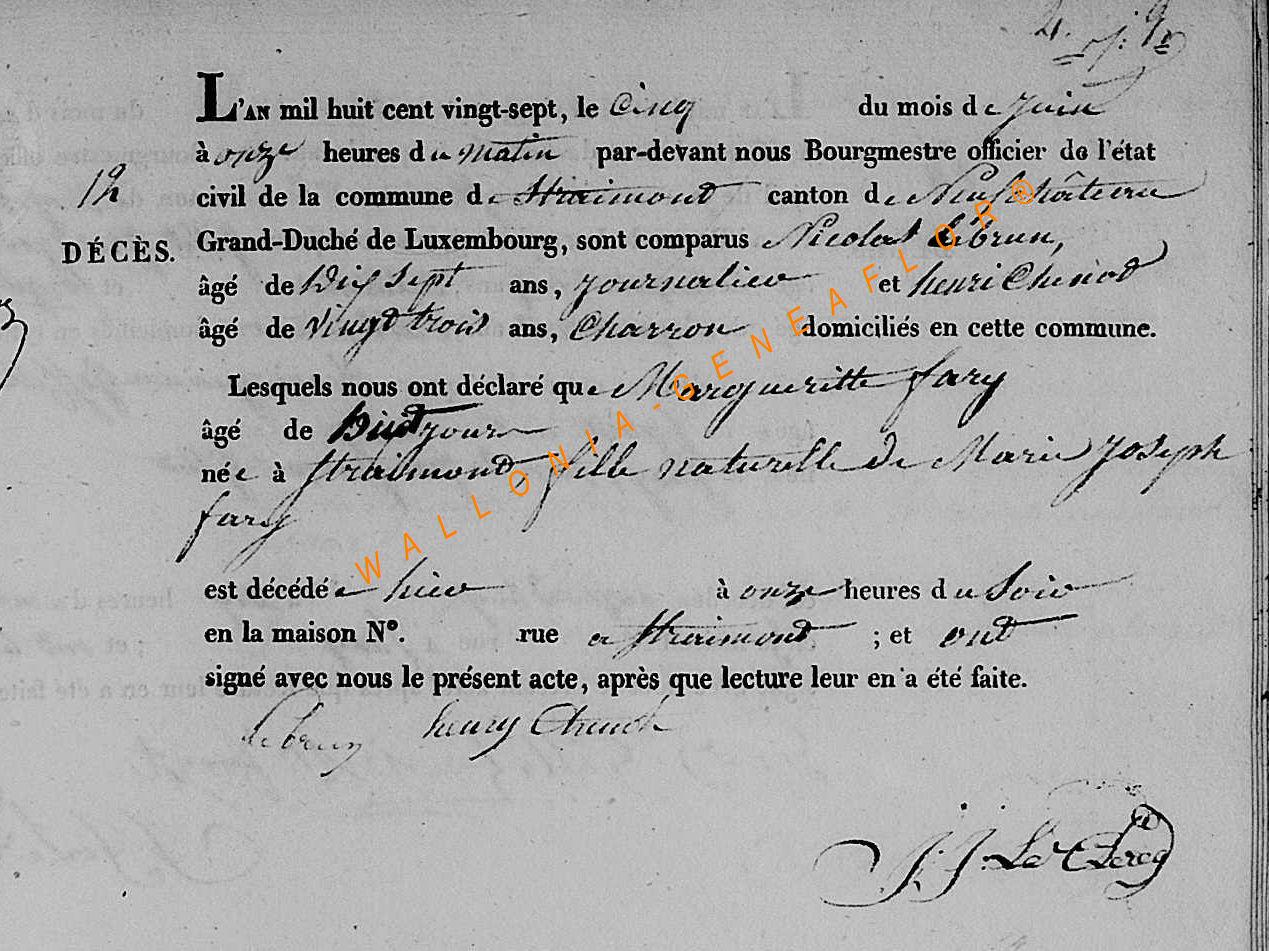 L'AN mil huit cent vingt-sept, le Cinq du mois de Juin
à onze heures du matin par-devant nous Bourgmestre officier de l'état
12
civil de la commune de Straimont canton de Neufchâteau
DÉCÈS.
Grand-Duché de Luxembourg, sont comparus Nicolas Lebrun,
âgé de Dix sept ans, journalier et henri Chenot
âgé de vingt trois ans, Charron domiciliés en cette commune.
Lesquels nous ont déclaré que Margueritte fary
âgé de huit jours
née à Straimont, fille naturelle de Marie Joseph
fary
est décédée hier à onze heures du Soir
en la maison N°. rue a Straimont ; et ont
signé avec nous le présent acte, après que lecture leur en a été faite.
lebrun henry Chenot
J. J. Le Clercq
WALLONIA-GENEAFLOR®